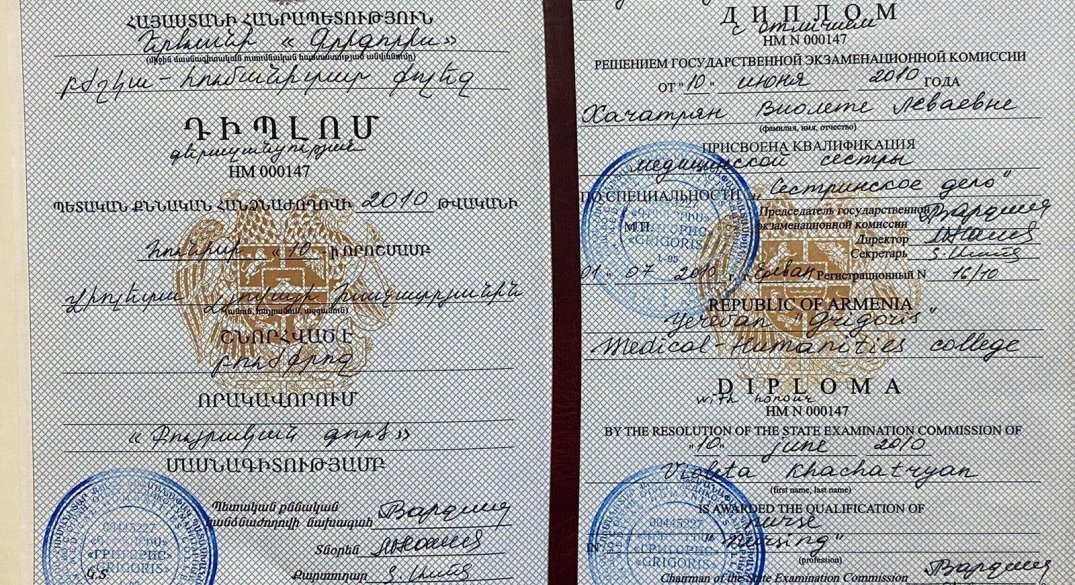 ՀԱՅԱՍՏԱՆԻ ՀԱՆՐԱՊԵՏՈՒԹՅՈՒՆ
Երևանի «Գրիգորիս»
(միջին մասնագիտական ուսումնական հաստատության անվանումը)
բժշկա-հումանիտար քոլեջ
ԴԻՊԼՈՄ
գերազանցության
HM 000147
ՊԵՏԱԿԱՆ ՔՆՆԱԿԱՆ ՀԱՆՁՆԱԺՈՂՈՎԻ 2010 ԹՎԱԿԱՆԻ
հունիսի «10» Ի ՈՐՈՇՄԱՄԲ
Վիոլետա Խաչատրյանին
(անուն, հայրանուն, ազգանուն)
ՇՆՈՐՀՎԱԾ Է
բուժքրոջ
ՈՐԱԿԱՎՈՐՈՒՄ
«Քույրական գործ»
ՄԱՍՆԱԳԻՏՈՒԹՅԱՄԲ
Պետական քննական
հանձնաժողովի նախագահ
Տնօրեն
Քարտուղար
00445297
«ГРИГОРИС»
«GRIGORIS»
ДИПЛОМ
с отличием
HM N 000147
РЕШЕНИЕМ ГОСУДАРСТВЕННОЙ ЭКЗАМЕНАЦИОННОЙ КОМИССИИ
ОТ "10" июня 2010 ГОДА
Хачатрян Виолете Леваевне
(фамилия, имя, отчество)
ПРИСВОЕНА КВАЛИФИКАЦИЯ
медицинской сестры
ПО СПЕЦИАЛЬНОСТИ "Сестринское дело"
Председатель государственной
экзаменационной комиссии
М.П.
Директор
Секретарь
01 07 2010 г. г. Ереван Регистрационный N 16/10
«ГРИГОРИС»
«GRIGORIS»
REPUBLIC OF ARMENIA
Yerevan "Grigoris"
Medical-Humanities college
DIPLOMA
with honour
HM N 000147
BY THE RESOLUTION OF THE STATE EXAMINATION COMMISSION OF
"10" june 2010
Violeta Khachatryan
(first name, last name)
IS AWARDED THE QUALIFICATION OF
nurse
IN "Nursing"
(profession)
Chairman of the State Examination Commission
00445297
«ГРИГОРИС»
«GRIGORIS»